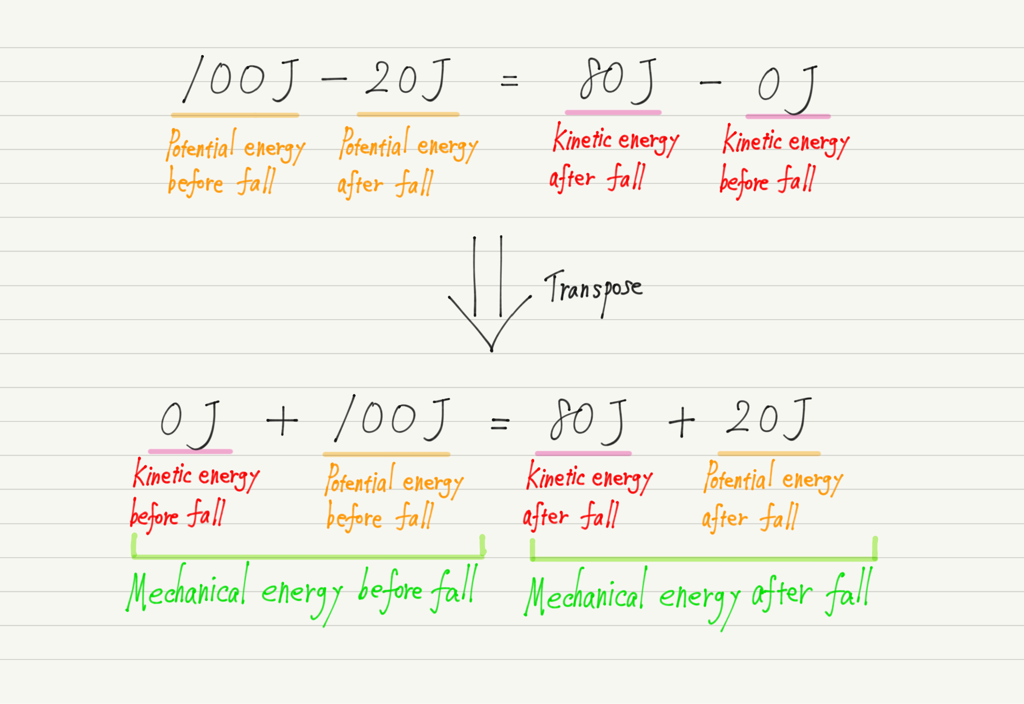 100J - 20J = 80J - 0J
Potential energy before fall
Potential energy after fall
Kinetic energy after fall
Kinetic energy before fall
Transpose
0J + 100J = 80J + 20J
Kinetic energy before fall
Potential energy before fall
Kinetic energy after fall
Potential energy after fall
Mechanical energy before fall
Mechanical energy after fall